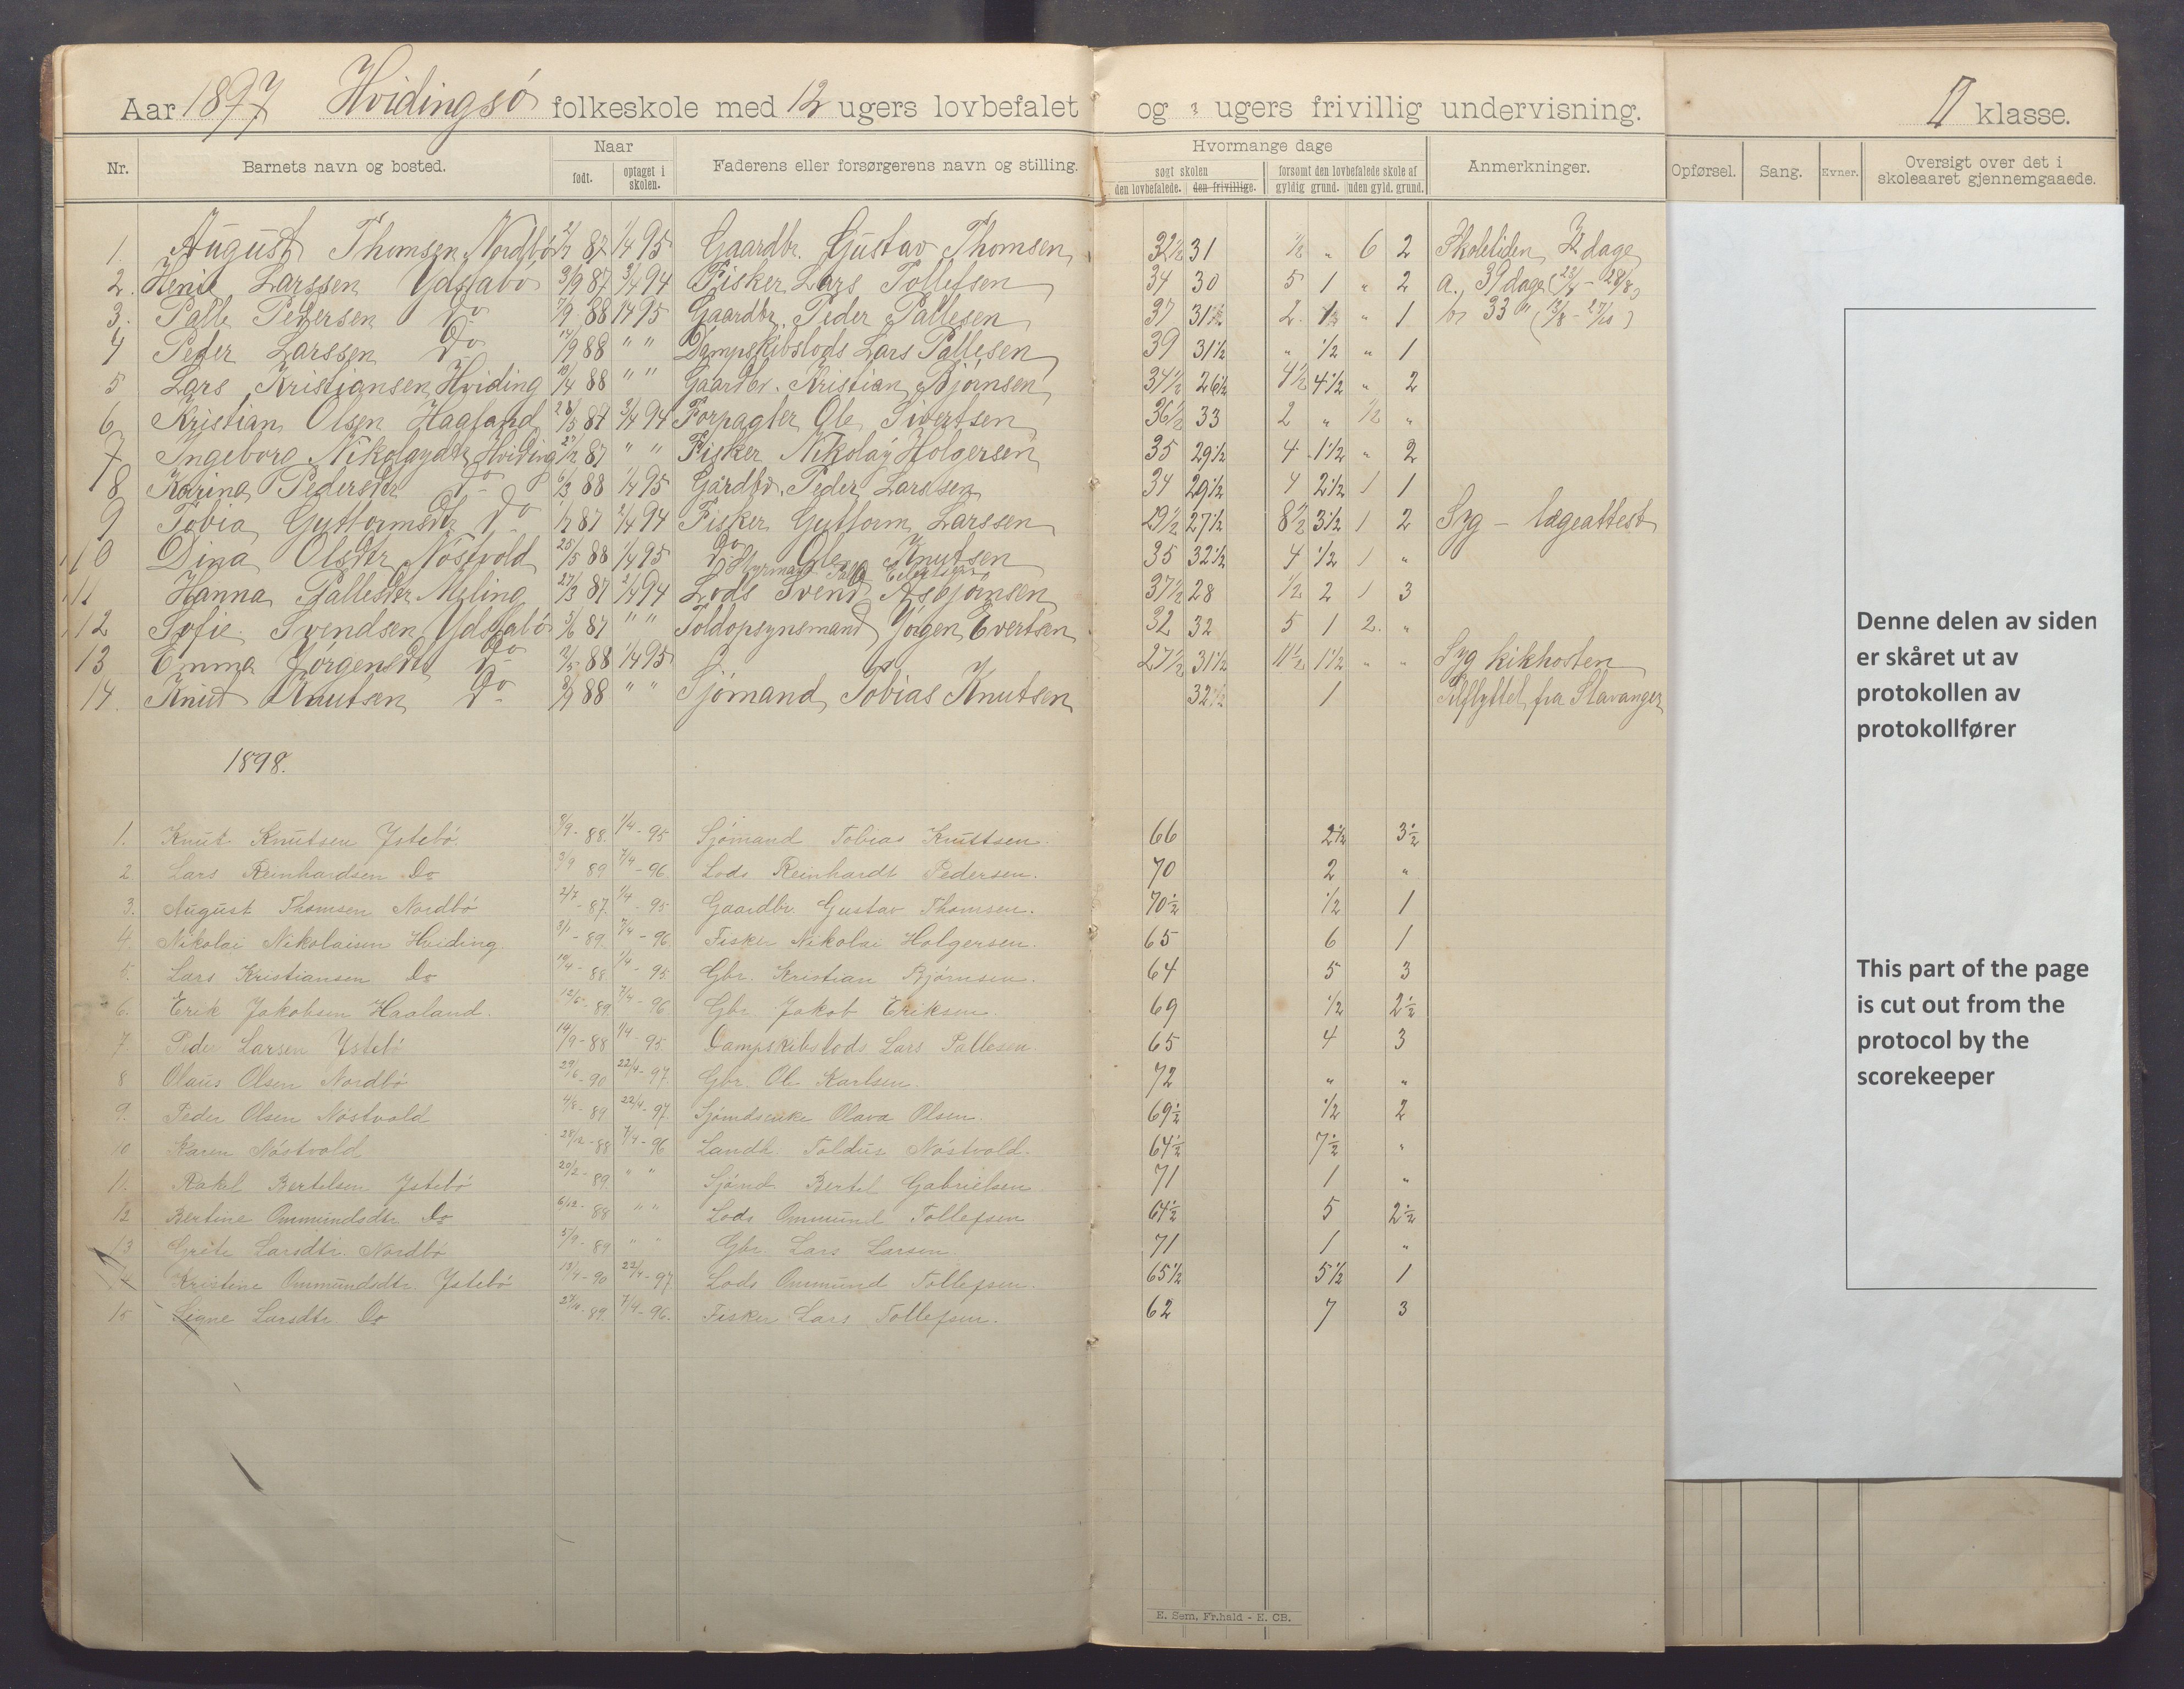 Aar 1897 Hvidingsö folkeskole med 12 ugers lovbefalet og ugers frivillig undervisning. II klasse.
Nr. Barnets navn og bosted. Naar født. optaget i skolen. Faderens eller forsørgerens navn og stilling. Hvormange dage søgt skolen den lovbefalede. den frivillige. forsømt den lovbefalede skole af gyldig grund. uden gyld. grund. Anmerkninger. Opførsel. Sang. Evner. Oversigt over det i skoleaaret gjennemgaaede.
1. August Thomsen Nordbö 2/7 87 1/4 95 Gaardbr. Gustav Thomsen 32 1/2 31 1/2 " 6 2 Skoletiden 72 dage
2. Larssen Ydstabö 3/9 87 3/4 94 Fisker Lars Tollefsen 34 30 5 1 " 2 a. 39 dage
3. Palle Pedersen Do 7/9 88 1/4 95 Gaardbr. Peder Pallesen 37 31 1/2 2 " 1 b. 33 "
4 Peder Larssen Do 14/9 88 " " Dampskibslods Lars Pallesen 39 31 1/2 " 1/2 " 1
5 Lars Kristiansen Hviding 19/4 88 " " Gaardbr. Kristian Bjørnsen 34 1/2 26 1/2 4 1/2 4 1/2 " 2
6 Kristian Olsen Haaland 28/5 87 3/4 94 Forpagter Ole Sivertsen 36 1/2 33 2 " 1/2 "
7 Ingeborg Nikolaydtr Hviding 87 " " Fisker Nikolay Holgersen 35 29 1/2 4 1 1/2 " 2
8 Karina Pedersdtr Do 6/3 88 1/4 95 Gardbr. Peder Larssen 34 29 1/2 4 2 1/2 1 1
9 Tobia Guttormsdtr Do 87 2/4 94 Fisker Guttorm Larssen 29 1/2 27 1/2 8 1/2 3 1/2 1 2 Syg – lægeattest
10 Dina Olsdtr Nöstvold 25/5 88 1/4 95 Do Ole Knutsen 35 32 1/2 4 1/2 1 "
11 Hanna Pallesdtr Meling 27/3 87 2/4 94 Lods Svend Asbjørnsen 37 1/2 28 1/2 2 1 3
12 Sofie Svendsen Ydstabö 5/6 87 " " Toldopsynsmand Jörgen Evertsen 32 32 5 1 2 "
13 Emma Jörgensdtr Do 2/5 88 1/4 95 27 1/2 31 1/2 11 1/2 1 1/2 " " Syg kikhosten
14. Knut Knutsen Do 8/9 88 " " Sjömand Tobias Knutsen 32 1/2 1 Tilflyttet fra Stavanger
1898.
1. Knut Knutsen Ystebö 8/9-88. 1/4-95 Sjömand Tobias Knutsen. 66 2 1/2 3 1/2
2 Lars Reinhardsen Do 3/9 89 7/4-96. Lods Reinhardt Pedersen. 70 2 "
3. August Thomsen Nordbö 2/7-87. 1/4-95 Gaardbr. Gustav Thomsen. 70 1/2 1/2 1
4. Nikolai Nikolaisen Hviding. 3/1-89. 7/4-96. Fisker Nikolai Holgersen. 65 6 1
5. Lars Kristiansen Do 19/4-88 1/4-95. Gbr. Kristian Bjørnsen. 64 5 3
6. Erik Jakobsen Haaland. 12/5-89 7/4-96 Gbr. Jakob Eriksen. 69 1/2 2 1/2
7. Peder Larsen Ystebö 14/9-88 1/4-95. Dampskibslods Lars Pallesen. 65 4 3
8 Olaus Olsen Nordbö 29/6-90 22/4-97. Gbr. Ole Karlsen. 72 " "
9. Peder Olsen Nöstvold 4/8-89 22/4-97. Sjömdsenke Olava Olsen. 69 1/2 1/2 2
10 Karen Nöstvold 28/12-88 7/4-96 Landh. Toldus Nöstvold. 64 1/2 7 1/2 "
11. Rakel Bertelsen Ystebö 20/2-89. " " Sjömd. Bertel Gabrielsen. 71 1 "
12 Bertine Ommundsdtr. Do 6/12-88 " " Lods Ommund Tollefsen 64 1/2 5 2 1/2
13 Grete Larsdtr. Nordbö 5/9-89 " " Gbr. Lars Larsen 71 1 "
14 Kristine Ommundsdtr. Ystebö 18/4-90 22/4-97. Lods Ommund Tollefsen. 65 1/2 5 1/2 1
15 Signe Larsdtr. Do 89. 7/4-96. Fisker Lars Tollefsen. 62 7 3
E. Sem, Fr.hald - E. CB.
Denne delen av siden
er skåret ut av
protokollen av
protokollfører
This part of the page
is cut out from the
protocol by the
scorekeeper